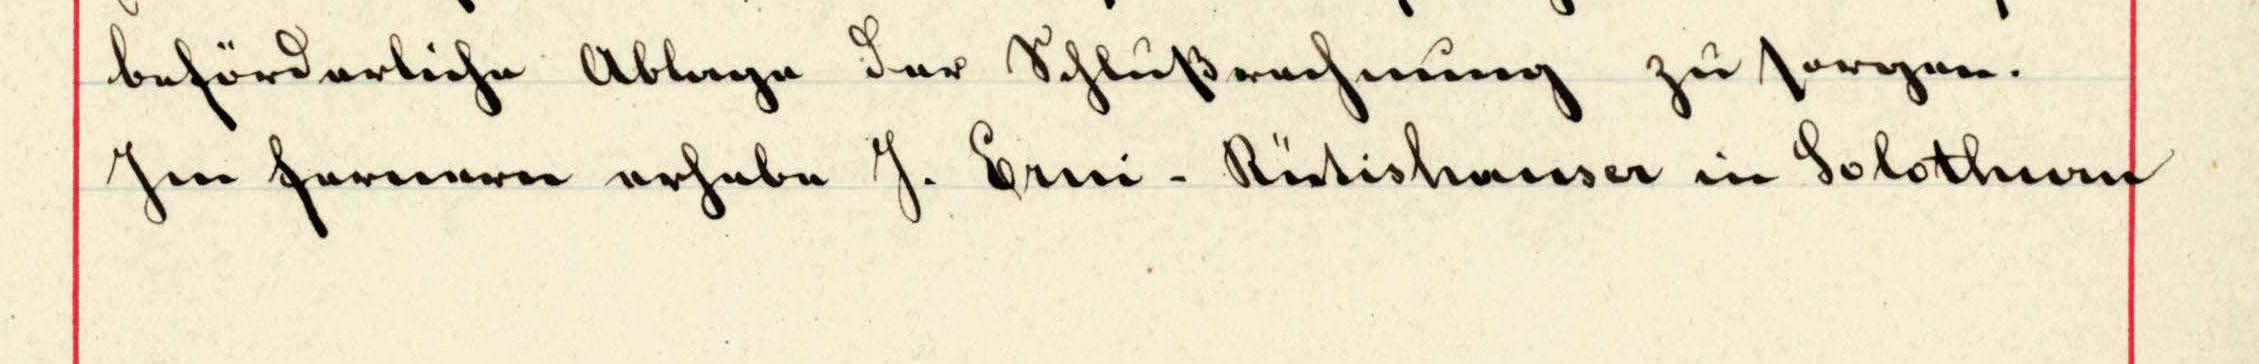 beförderliche Ablage der Schlußrechnung zu sorgen.
Im fernern erhebe J. Erni-Rütishauser in Solothurn